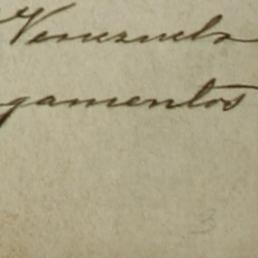 Venezuela
gamentos
3